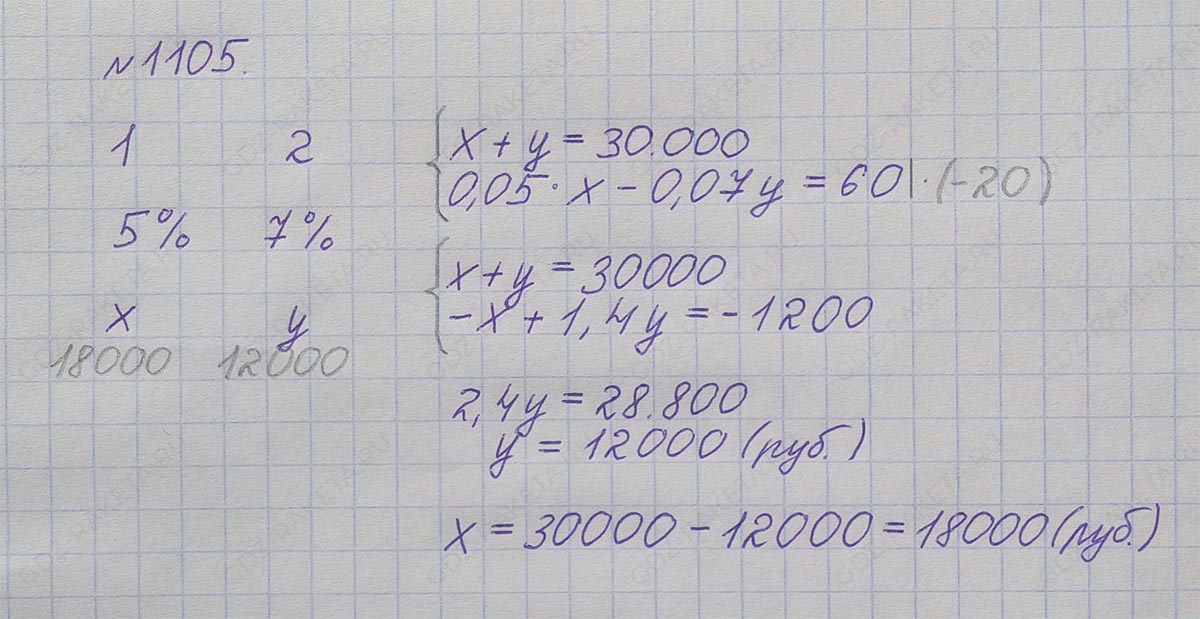 №1105.
1 2
5% 7%
x y
18000 12000
x + y = 30.000
0,05 · x - 0,07y = 60 | · (-20)
x + y = 30000
-x + 1,4y = -1200
2,4y = 28.800
y = 12000 (руб.)
x = 30000 - 12000 = 18000 (руб.)
GDZ-RAKETA.RU